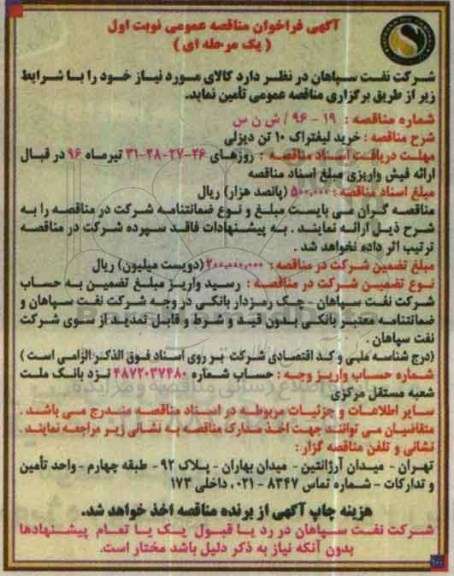 آگهی فراخوان مناقصه عمومی نوبت اول
( یک مرحله ای )
شرکت نفت سپاهان در نظر دارد کالای مورد نیاز خود را با شرایط
زیر از طریق برگزاری مناقصه عمومی تأمین نماید.
شماره مناقصه : ۱۹ - ۹۶ / ش ن س
شرح مناقصه : خرید لیفتراک ۱۰ تن دیزلی
مهلت دریافت اسناد مناقصه : روزهای ۲۶-۲۷-۲۸-۳۱ تیرماه ۹۶ در قبال
ارائه فیش واریزی مبلغ اسناد مناقصه
مبلغ اسناد مناقصه : ۵۰۰,۰۰۰ (پانصد هزار) ریال
مناقصه گران می بایست مبلغ و نوع ضمانتنامه شرکت در مناقصه را به
شرح ذیل ارائه نمایند . به پیشنهادات فاقد سپرده شرکت در مناقصه
ترتیب اثر داده نخواهد شد .
مبلغ تضمین شرکت در مناقصه : ۲۰۰,۰۰۰,۰۰۰ (دویست میلیون) ریال
نوع تضمین شرکت در مناقصه : رسید واریز مبلغ تضمین به حساب
شرکت نفت سپاهان - چک رمزدار بانکی در وجه شرکت نفت سپاهان و
ضمانتنامه معتبر بانکی بدون قید و شرط و قابل تمدید از سوی شرکت
نفت سپاهان .
(درج شناسه ملی و کد اقتصادی شرکت بر روی اسناد فوق الذکر الزامی است )
شماره حساب واریز وجه : حساب شماره ۴۸۷۲۰۳۷۴۸۰ نزد بانک ملت
شعبه مستقل مرکزی
سایر اطلاعات و جزئیات مربوطه در اسناد مناقصه مندرج می باشد .
متقاضیان می توانند جهت اخذ مدارک مناقصه به نشانی زیر مراجعه نمایند .
نشانی و تلفن مناقصه گزار :
تهران - میدان آرژانتین - میدان بهاران - پلاک ۹۲ - طبقه چهارم - واحد تأمین
و تدارکات - شماره تماس ۸۳۴۷ - ۰۲۱، داخلی ۱۷۳
هزینه چاپ آگهی از برنده مناقصه اخذ خواهد شد.
شرکت نفت سپاهان در رد یا قبول یک یا تمام پیشنهادها
بدون آنکه نیاز به ذکر دلیل باشد مختار است.